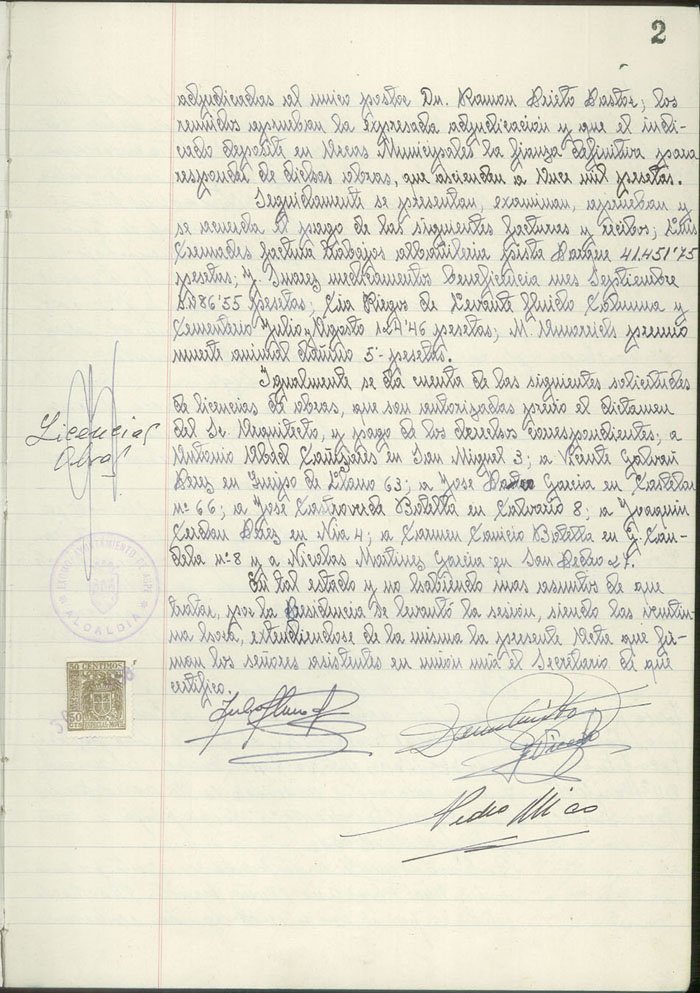 2
adjudicadas al unico postor Dn. Ramon Prieto Pastor; los
reunidos aprueban la expresada adjudicación y que el indi-
cado deposite en Arcas Municipales la fianza definitiva para
responder de dichas obras, que ascienden a once mil pesetas.
Seguidamente se presentan, examinan, aprueban y
se acuerda el pago de las siguientes facturas y recibos; Luis
Cremades factura trabajos albañileria pista Parque 41.451'75
pesetas; J. Juarez medicamentos beneficencia mes Septiembre
86'55 pesetas; Cia Riegos de Levante fluido Columna y
Cementerio Julio y Agosto pesetas; Mª premio
muerte animal dañino 5- pesetas.
Igualmente se dá cuenta de las siguientes solicitudes
de licencias de obras, que son autorizadas prévio el dictamen
del Sr. Arquitecto, y pago de los derechos correspondientes; a
Antonio Abad Cañizares en San Miguel 3; a Vicente Galvañ
Perez en Queipo de Llano 63; a José Garcia en Castelar
nº 66; a José Castroverde Botella en Calvario 8; a Joaquin
Cerdan Perez en 4; a Carmen Canicio Botella en G. Can-
dela nº 8 y a Nicolas Martinez Garcia en San Pedro 27.
En tal estado y no habiendo mas asuntos de que
tratar, por la Presidencia se levantó la sesión, siendo las veinti-
una hora, extendiendose de la misma la presente Acta que fir-
man los señores asistentes en unión mia el Secretario de que
certifico.
Licencias
Obras
AYUNTAMIENTO DE
ALCALDIA
50 CENTIMOS
50 CTS
ESPECIAL MOVIL
Pedro Mico